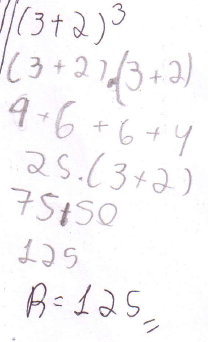 (3+2)³
(3+2).(3+2)
9+6+6+4
25.(3+2)
75+50
125
R=125